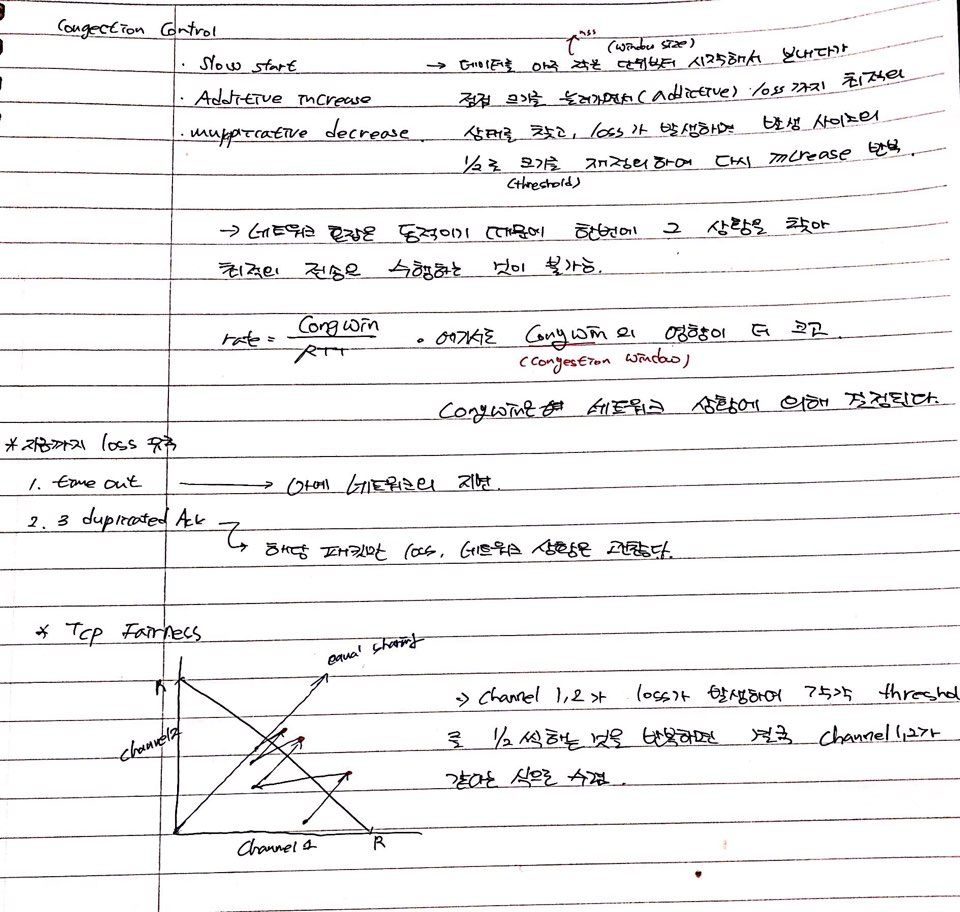 Congection Control
mss
(window size)
· Slow start → 데이터를 아주 작은 단위부터 시작해서 보내다가
· Additive increase 점점 크기를 늘려가면서(addictive) loss까지 최적의
· decrease. 상태를 찾고, loss가 발생하면 발생 사이즈의
1/2로 크기를 재정의하여 다시 increase 반복.
(threshold)
→ 네트워크 환경은 동적이기 때문에 한번에 그 상황을 찾아
최적의 전송은 수행하는 것이 불가능.
rate = CongWin / RTT · 여기서도 CongWin의 영향이 더 크고.
(Congestion window)
CongWin은 네트워크 상황에 의해 결정된다.
* 지금까지 loss
1. time out → 아예 네트워크의 지연.
2. 3 duplicated Ack
↳ 해당 패킷만 loss, 네트워크 상황은 괜찮다.
* Tcp Fairness
equal sharing
R
→ Channel 1,2가 loss가 발생하여 각각 threshol
Channel 2
로 1/2씩 하는 것을 반복하면 결국 channel 1,2가
같아는 식으로 수렴.
Channel 1
R